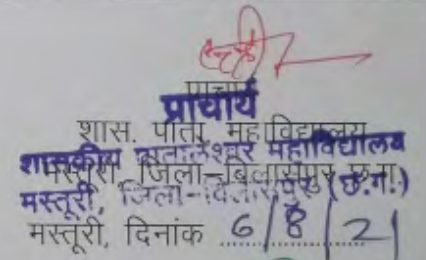 प्राचार्य
प्राचार्य
शास. पाता. महाविद्यालय
शासकीय पातालेश्वर महाविद्यालय
मस्तूरी जिला-बिलासपुर छ.ग.
मस्तूरी, जिला-बिलासपुर (छ.ग.)
मस्तूरी, दिनांक 6/8/21